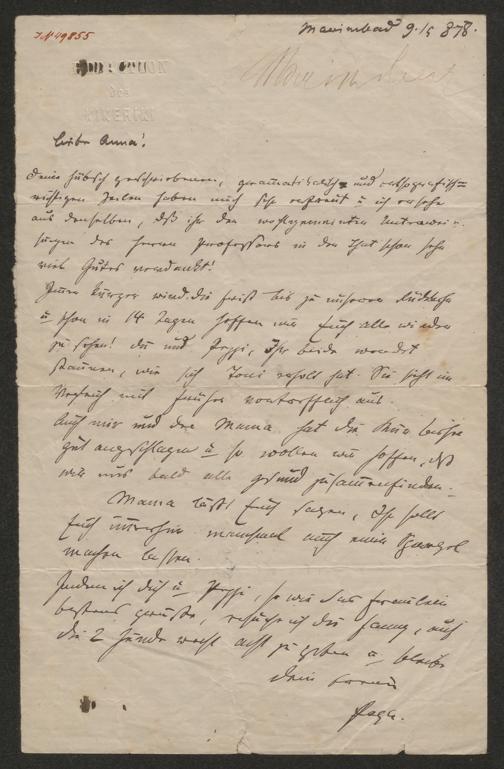 I.N 49855
Marienbad 9./5 878.
Marienbad
REDACTION
des
KIKERIKI
Liebe Anna!
Deine hübsch geschriebenen, gramatikalisch und orthografisch=
richtigen Zeilen haben mich sehr erfreut u ich ersehe
aus denselben, daß ihr den wohlgemeinten Unterwei=
sungen des Herrn Professors in der That schon sehr
viel Gutes verdankt!
Immer kürzer wird die Frist bis zu unserer Rückkehr
u schon in 14 Tagen hoffen wir Euch alle wieder
zu sehen! Du und Peppi, Ihr beide werdet
staunen, wie sich Toni erholt hat. Sie sieht im
Vergleich mit früher vortrefflich aus.
Auch mir und der Mama hat die Kur bisher
gut angeschlagen u so wollen wir hoffen, daß
wir uns bald alle gesund zusammenfinden.
Mama läßt Euch sagen, Ihr sollt
Euch immerhin manchmal auch einen
machen lassen.
Indem ich Dich u Peppi, so wie das Fräulein
bestens grüße, ersuche ich die Fanny, auf
die 2 Hunde recht acht zu geben u bleibe
Dein treuer
Papa.